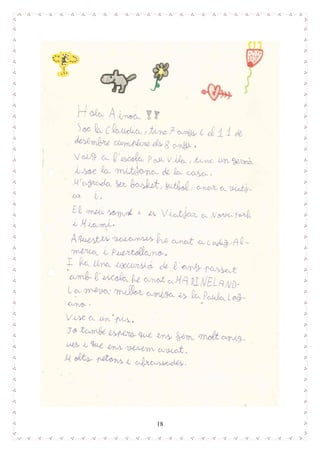 Hola Ainoa !!
Soc la Claudia, tinc 7 anys i el 11 de
desembre cumplire els 8 anys.
Vaig a l'escola Pau Vila, tinc un germà
i soc la mitjana de la casa.
M'agrada fer basket, futbol, anar a viatj-
ar i.
El meu somni és Viatjar a Nova York
i Miami.
Aquestes vacanses he anat a Cadiz, Al-
meria i Puertollano.
I ha una excursió de l'any passat
amb l'escola he anat a MARINELAND.
La meva millor amiga es la Paula
Visc a un pis.
Jo també espero que ens fem molt amig-
ues i que ens veiem aviat.
Molts petons i abrassades.
18